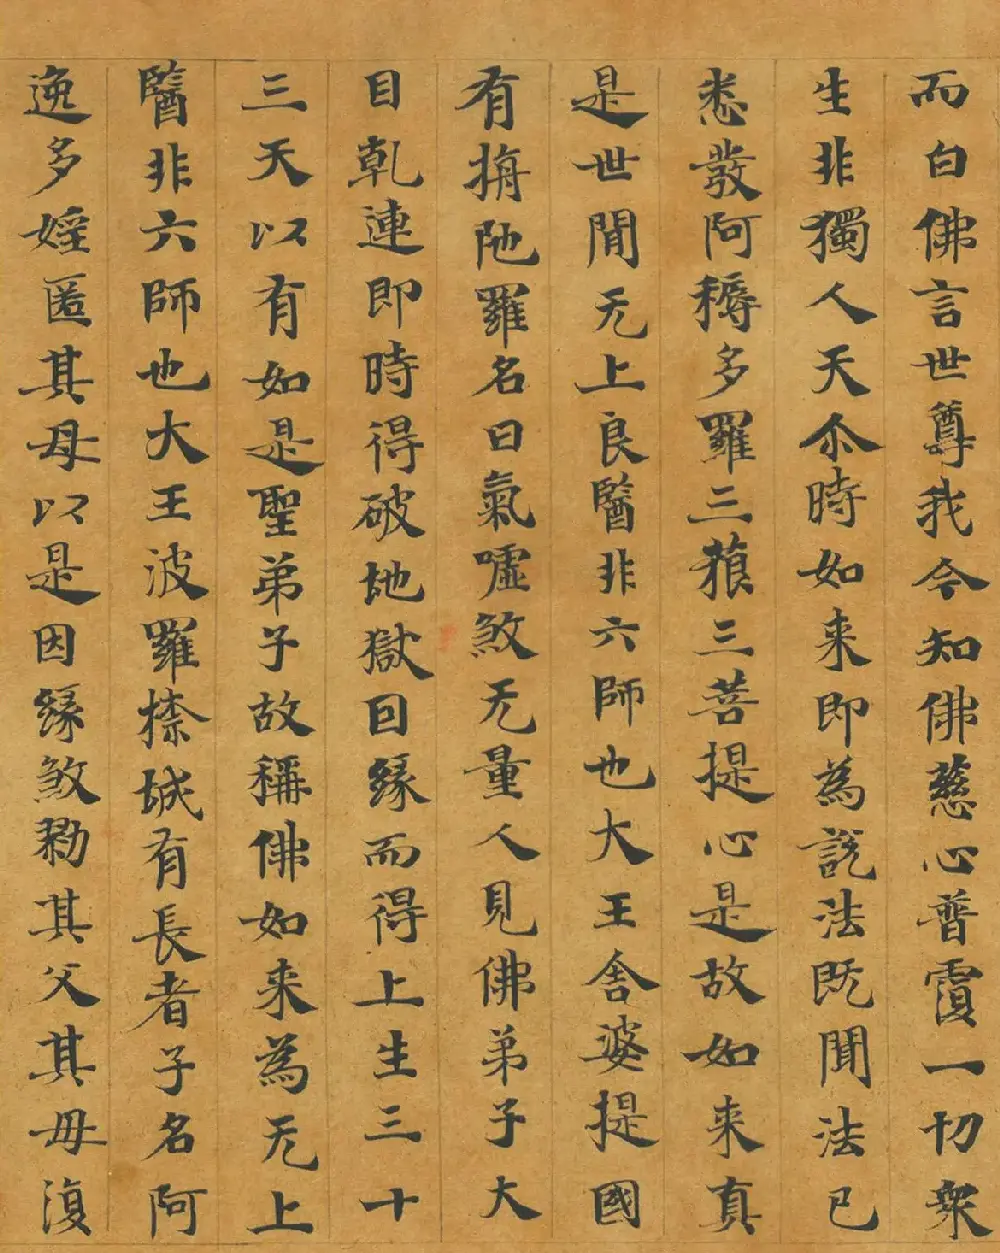 而白佛言世尊我今知佛慈心普覆一切衆
生非獨人天尒時如来即為説法既聞法已
悉發阿耨多羅三藐三菩提心是故如来真
是世閒无上良醫非六師也大王舍婆提國
有旃陁羅名曰氣嘘煞无量人見佛弟子大
目乹連即時得破地獄因緣而得上生三十
三天以有如是聖弟子故稱佛如来為无上
醫非六師也大王波羅㮈城有長者子名阿
逸多婬匿其母以是因緣煞勠其父其母復